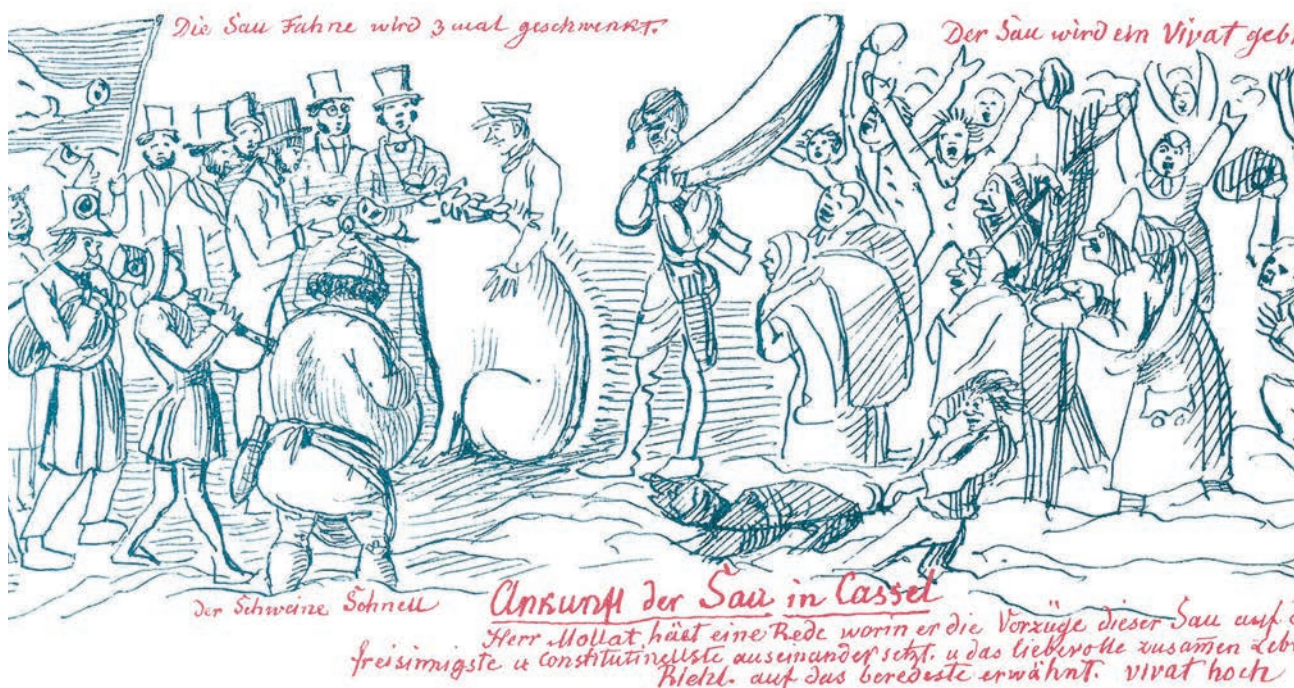 Die Sau Fahne wird 3 mal geschwenkt.
Der Sau wird ein Vivat geb
der Schweine Schnell
Ankunft der Sau in Cassel
Herr Mollat hält eine Rede worin er die Vorzüge dieser Sau auf d
freisinnigste u Constitutinellste auseinander setzt. u das liebevolle zusamen Leb
Riehl. auf das beredeste erwähnt. vivat hoch